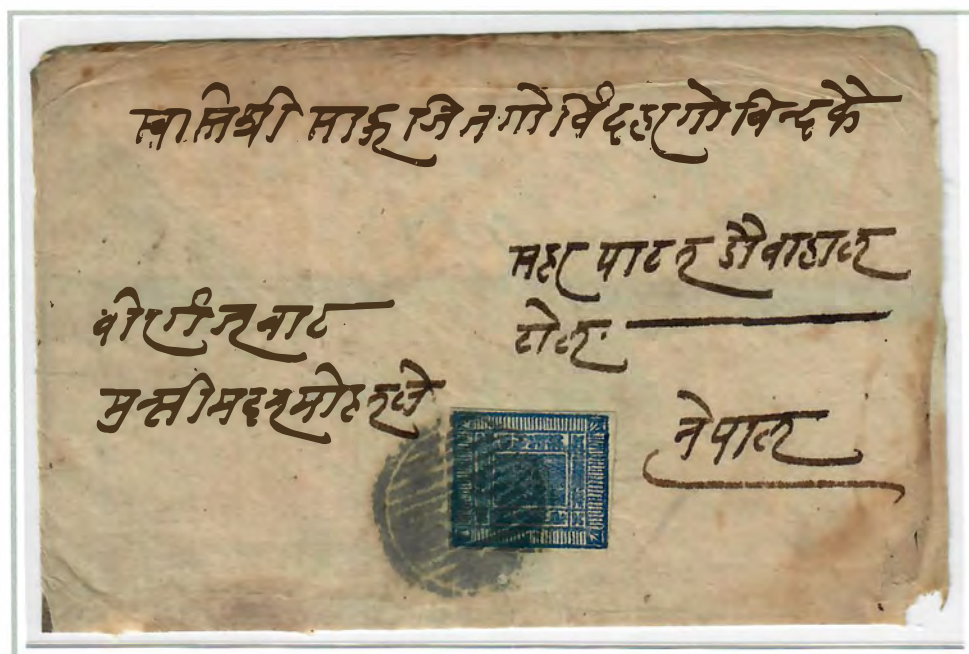 स्वास्तिश्री साहू जिनगोविंद हरगोविन्दकै
सहर पाटन डौवाहाल
टोल
नेपाल
वीरगंजवाट
मुन्सी मदनमोहनले